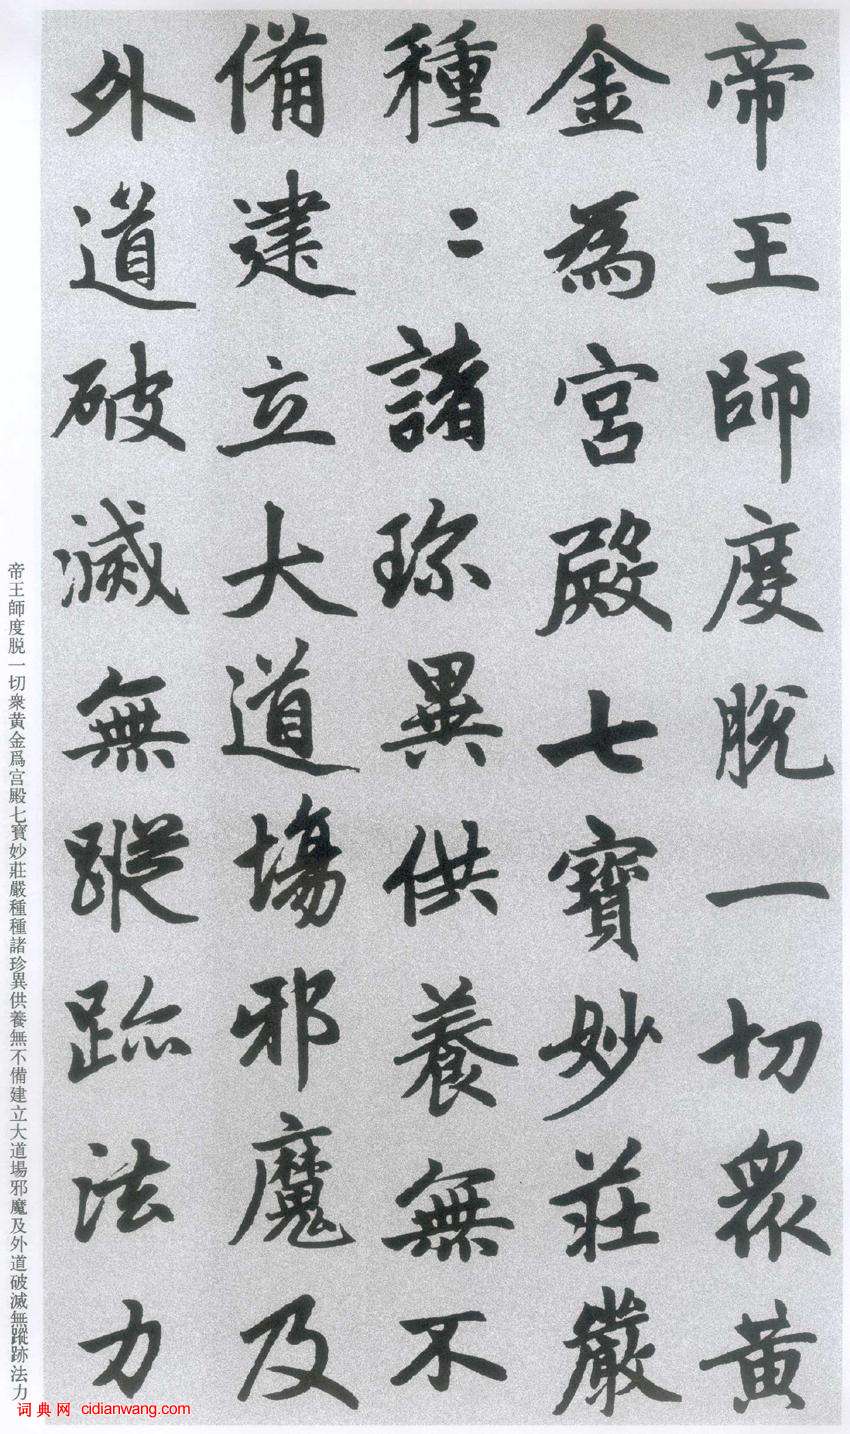 帝王師度脫一切衆黃
金為宮殿七寶妙莊嚴
種〻諸珎異供養無不
備建立大道場邪魔及
外道破滅無蹤跡法力
帝王師度脱一切衆黄金爲宮殿七寶妙莊嚴種種諸珍異供養無不備建立大道場邪魔及外道破滅無蹤跡法力
词典网 cidianwang.com